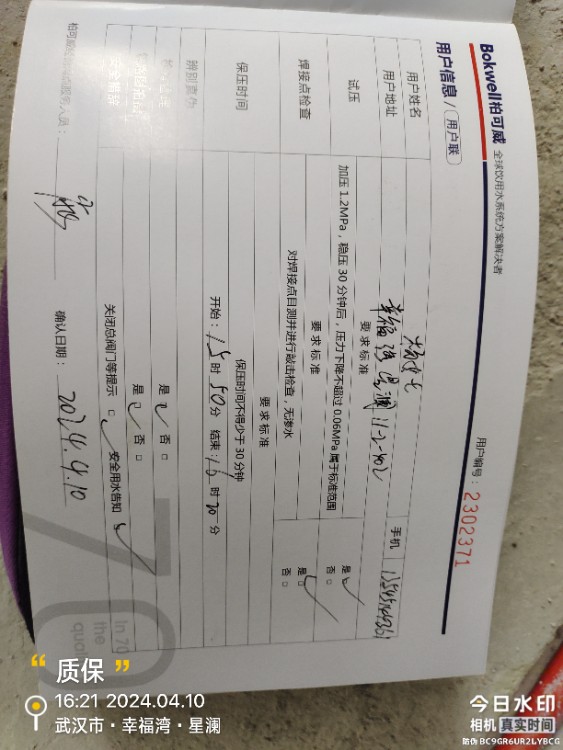 Bokwell柏可威 全球饮用水系统方案解决者
用户信息 / 用户联
用户编号：2302371
用户姓名
手机
用户地址 幸福湾星澜 11-2-402
试压
要求标准
加压 1.2MPa，稳压 30 分钟后，压力下降不超过 0.06MPa 属于标准范围
是 □ 否 □
焊接点检查
要求标准
对焊接点目测并进行敲击检查，无渗水
是 □ 否 □
保压时间
要求标准
保压时间不得少于 30 分钟
开始：15 时 50 分 结束：16 时 20 分
辨别真伪
是 □ 否 □
是 □ 否 □
安全措施
关闭总阀门等提示 □ 安全用水告知
服务人员：
确认日期： 2024.4.10
70
In 70
the
qual
“质保”
16:21 2024.04.10
武汉市·幸福湾·星澜
今日水印
相机 真实时间
防伪 BC9GR6UR2LYBCG